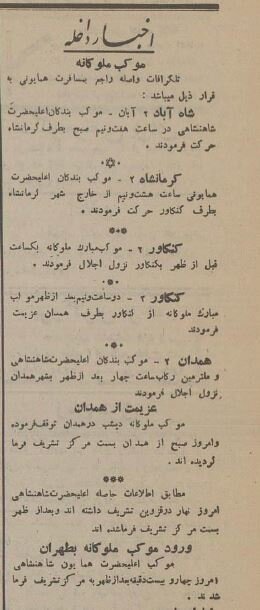 اخبار داخله
موكب ملوكانه
تلگرافات واصله راجع بمسافرت همایونی به
قرار ذیل میباشد :
شاه آباد ۲ آبان - موكب بندكان اعلیحضرت
شاهنشاهی در ساعت هفت‌ونیم صبح بطرف كرمانشاه
حركت فرمودند .
كرمانشاه ۲ - موكب بندكان اعلیحضرت
همایونی ساعت هشت‌ونیم از خارج شهر كرمانشاه
بطرف كنكاور حركت فرمودند .
كنكاور ۲ - موكب مبارك ملوكانه یكساعت
قبل از ظهر بكنكاور نزول اجلال فرمودند .
كنكاور ۲ - دوساعت‌ونیم بعد ازظهر موكب
مبارك ملوكانه از كنكاور بطرف همدان عزیمت
فرمودند
همدان ۲ - موكب بندكان اعلیحضرت شاهنشاهی
و ملتزمین ركاب ساعت چهار بعد ازظهر بشهر همدان
نزول اجلال فرمودند
عزیمت از همدان
موكب ملوكانه دیشب در همدان توقف فرموده
وامروز صبح از همدان بسمت مركز تشریف فرما
گردیده اند .
***
مطابق اطلاعات حاصله اعلیحضرت شاهنشاهی
امروز نهار درقزوین تشریف داشته اند وبعداز ظهر
بسمت مركز تشریف فرماشده اند
ورود موكب ملوكانه بطهران
موكب اعلیحضرت همایون شاهنشاهی
امروز چهارو بیست‌دقیقه بعدازظهر به مركز تشریف فرما
شدند .